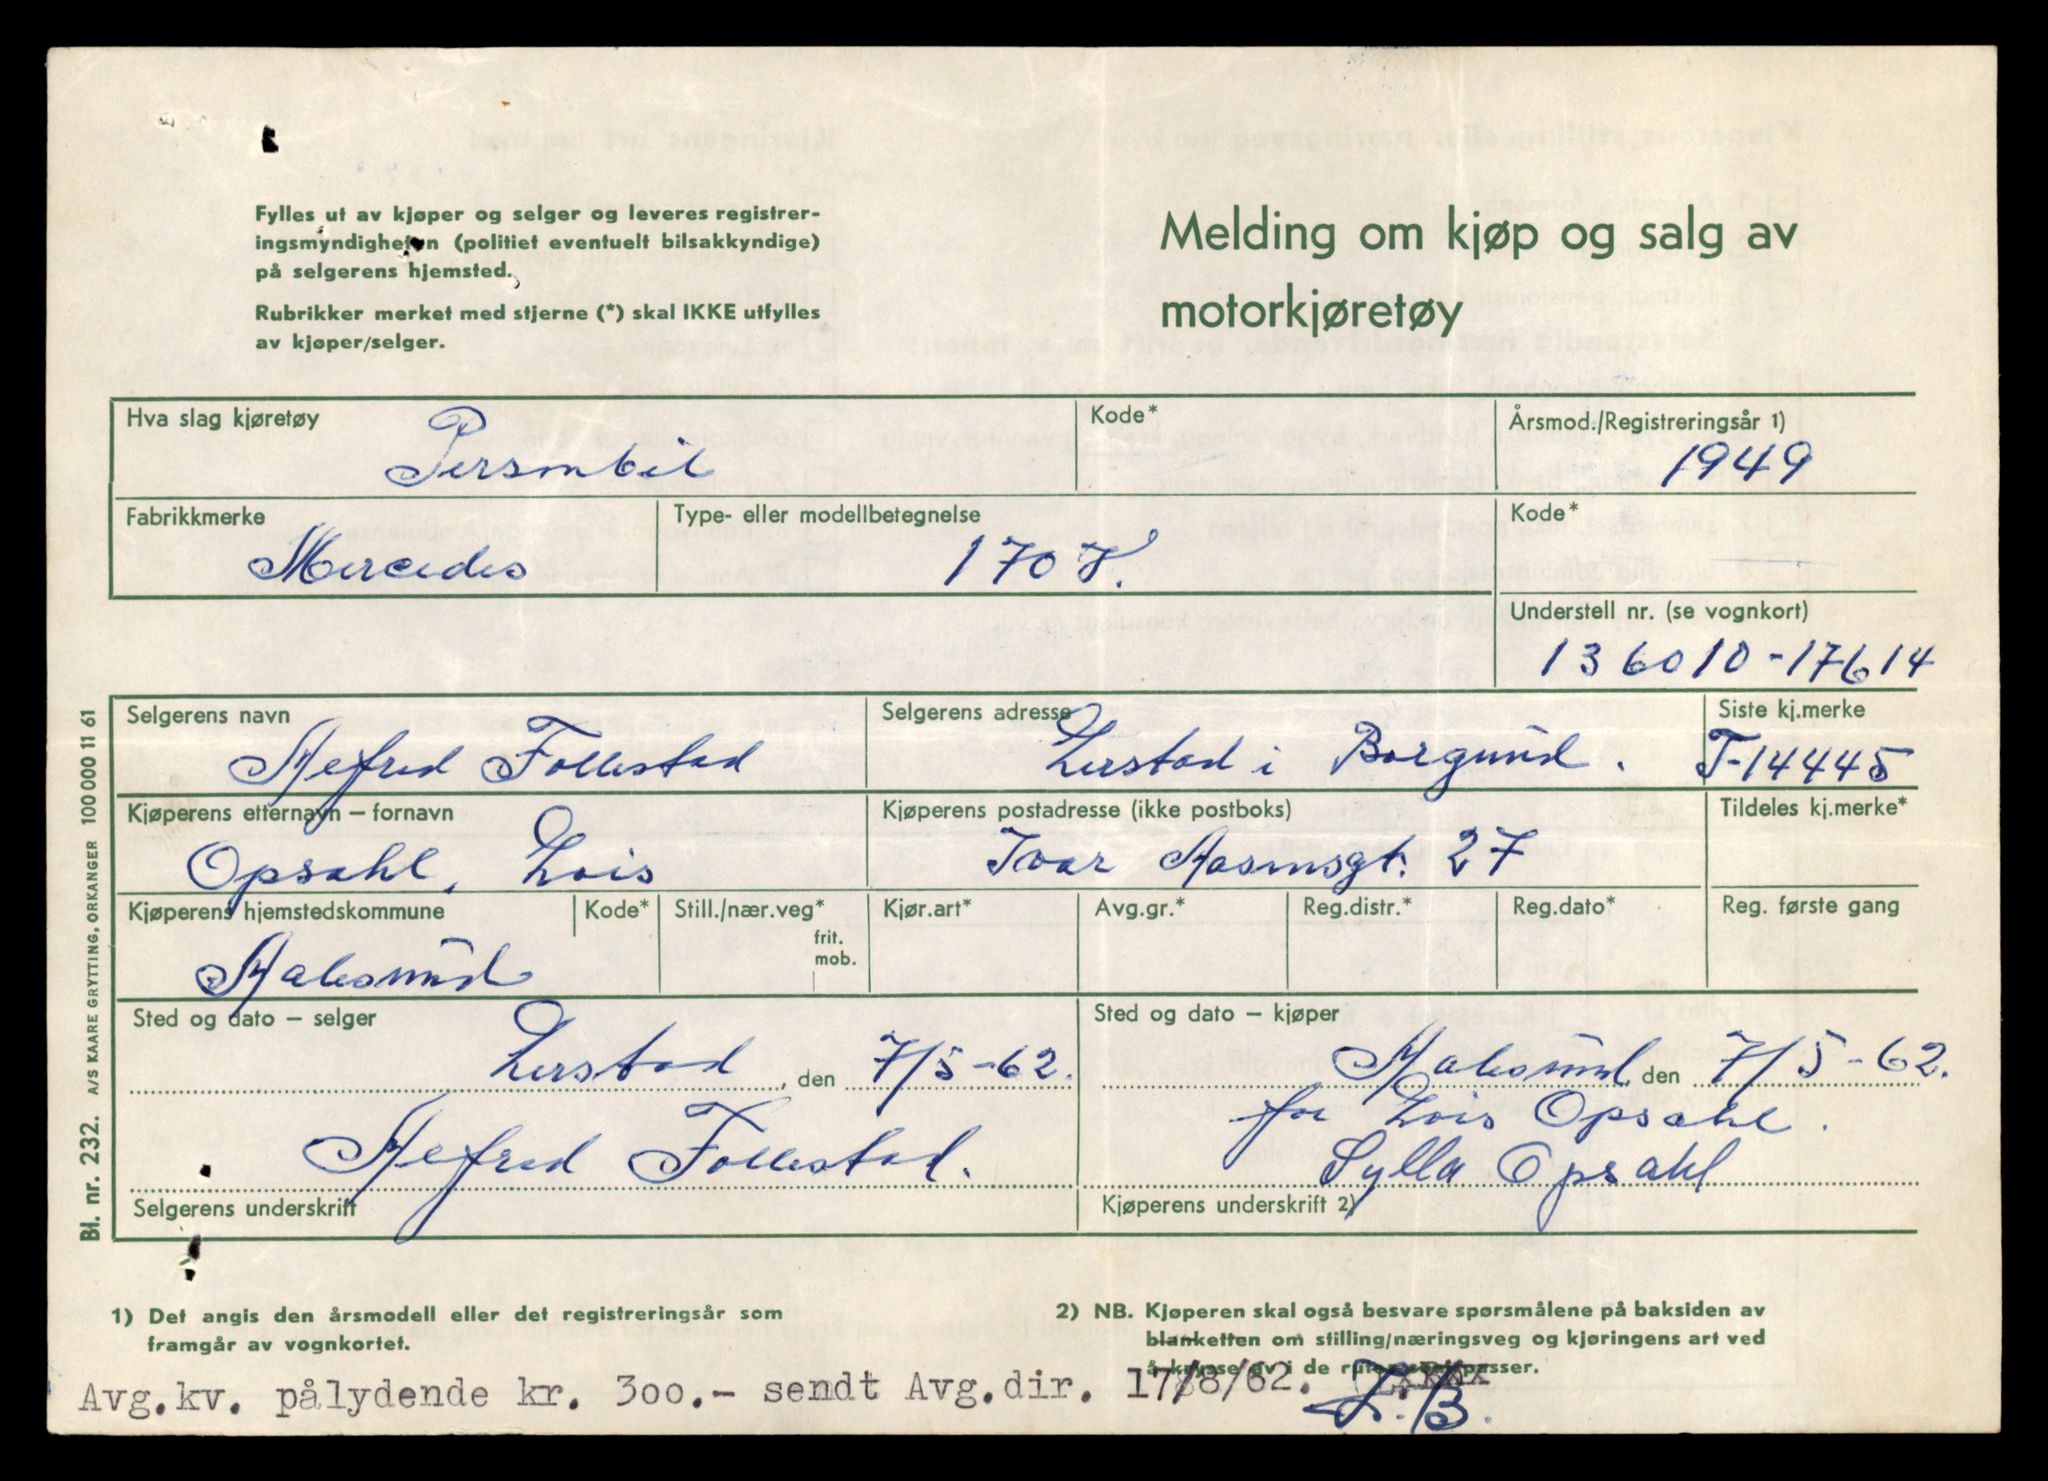 Fylles ut av kjøper og selger og leveres registrer-
ingsmyndigheten (politiet eventuelt bilsakkyndige)
på selgerens hjemsted.
Rubrikker merket med stjerne (*) skal IKKE utfylles
av kjøper/selger.
Melding om kjøp og salg av
motorkjøretøy
Hva slag kjøretøy
Personbil
Kode*
Årsmod./Registreringsår 1)
1949
Fabrikkmerke
Mercedes
Type- eller modellbetegnelse
170 V.
Kode*
Understell nr. (se vognkort)
136010-17614
Selgerens navn
Alfred Follestad
Selgerens adresse
Lerstad i Borgund.
Siste kj.merke
T-14445
Kjøperens etternavn – fornavn
Opsahl, Lois
Kjøperens postadresse (ikke postboks)
Ivar Aasensgt. 27
Tildeles kj.merke*
Kjøperens hjemstedskommune
Aalesund
Kode*
Still./nær.veg*
frit.
mob.
Kjør.art*
Avg.gr.*
Reg.distr.*
Reg.dato*
Reg. første gang
Sted og dato – selger
Lerstad, den 7/5-62.
Alfred Follestad.
Selgerens underskrift
Sted og dato – kjøper
Aalesund, den 7/5-62.
for Lois Opsahl.
Sylla Opsahl
Kjøperens underskrift 2)
Bl. nr. 232. A/S KAARE GRYTTING, ORKANGER 100 000 11 61
1) Det angis den årsmodell eller det registreringsår som
framgår av vognkortet.
2) NB. Kjøperen skal også besvare spørsmålene på baksiden av
blanketten om stilling/næringsveg og kjøringens art ved
å krysse av i de ruter som passer.
Avg.kv. pålydende kr. 300.- sendt Avg.dir. 17/8/62.